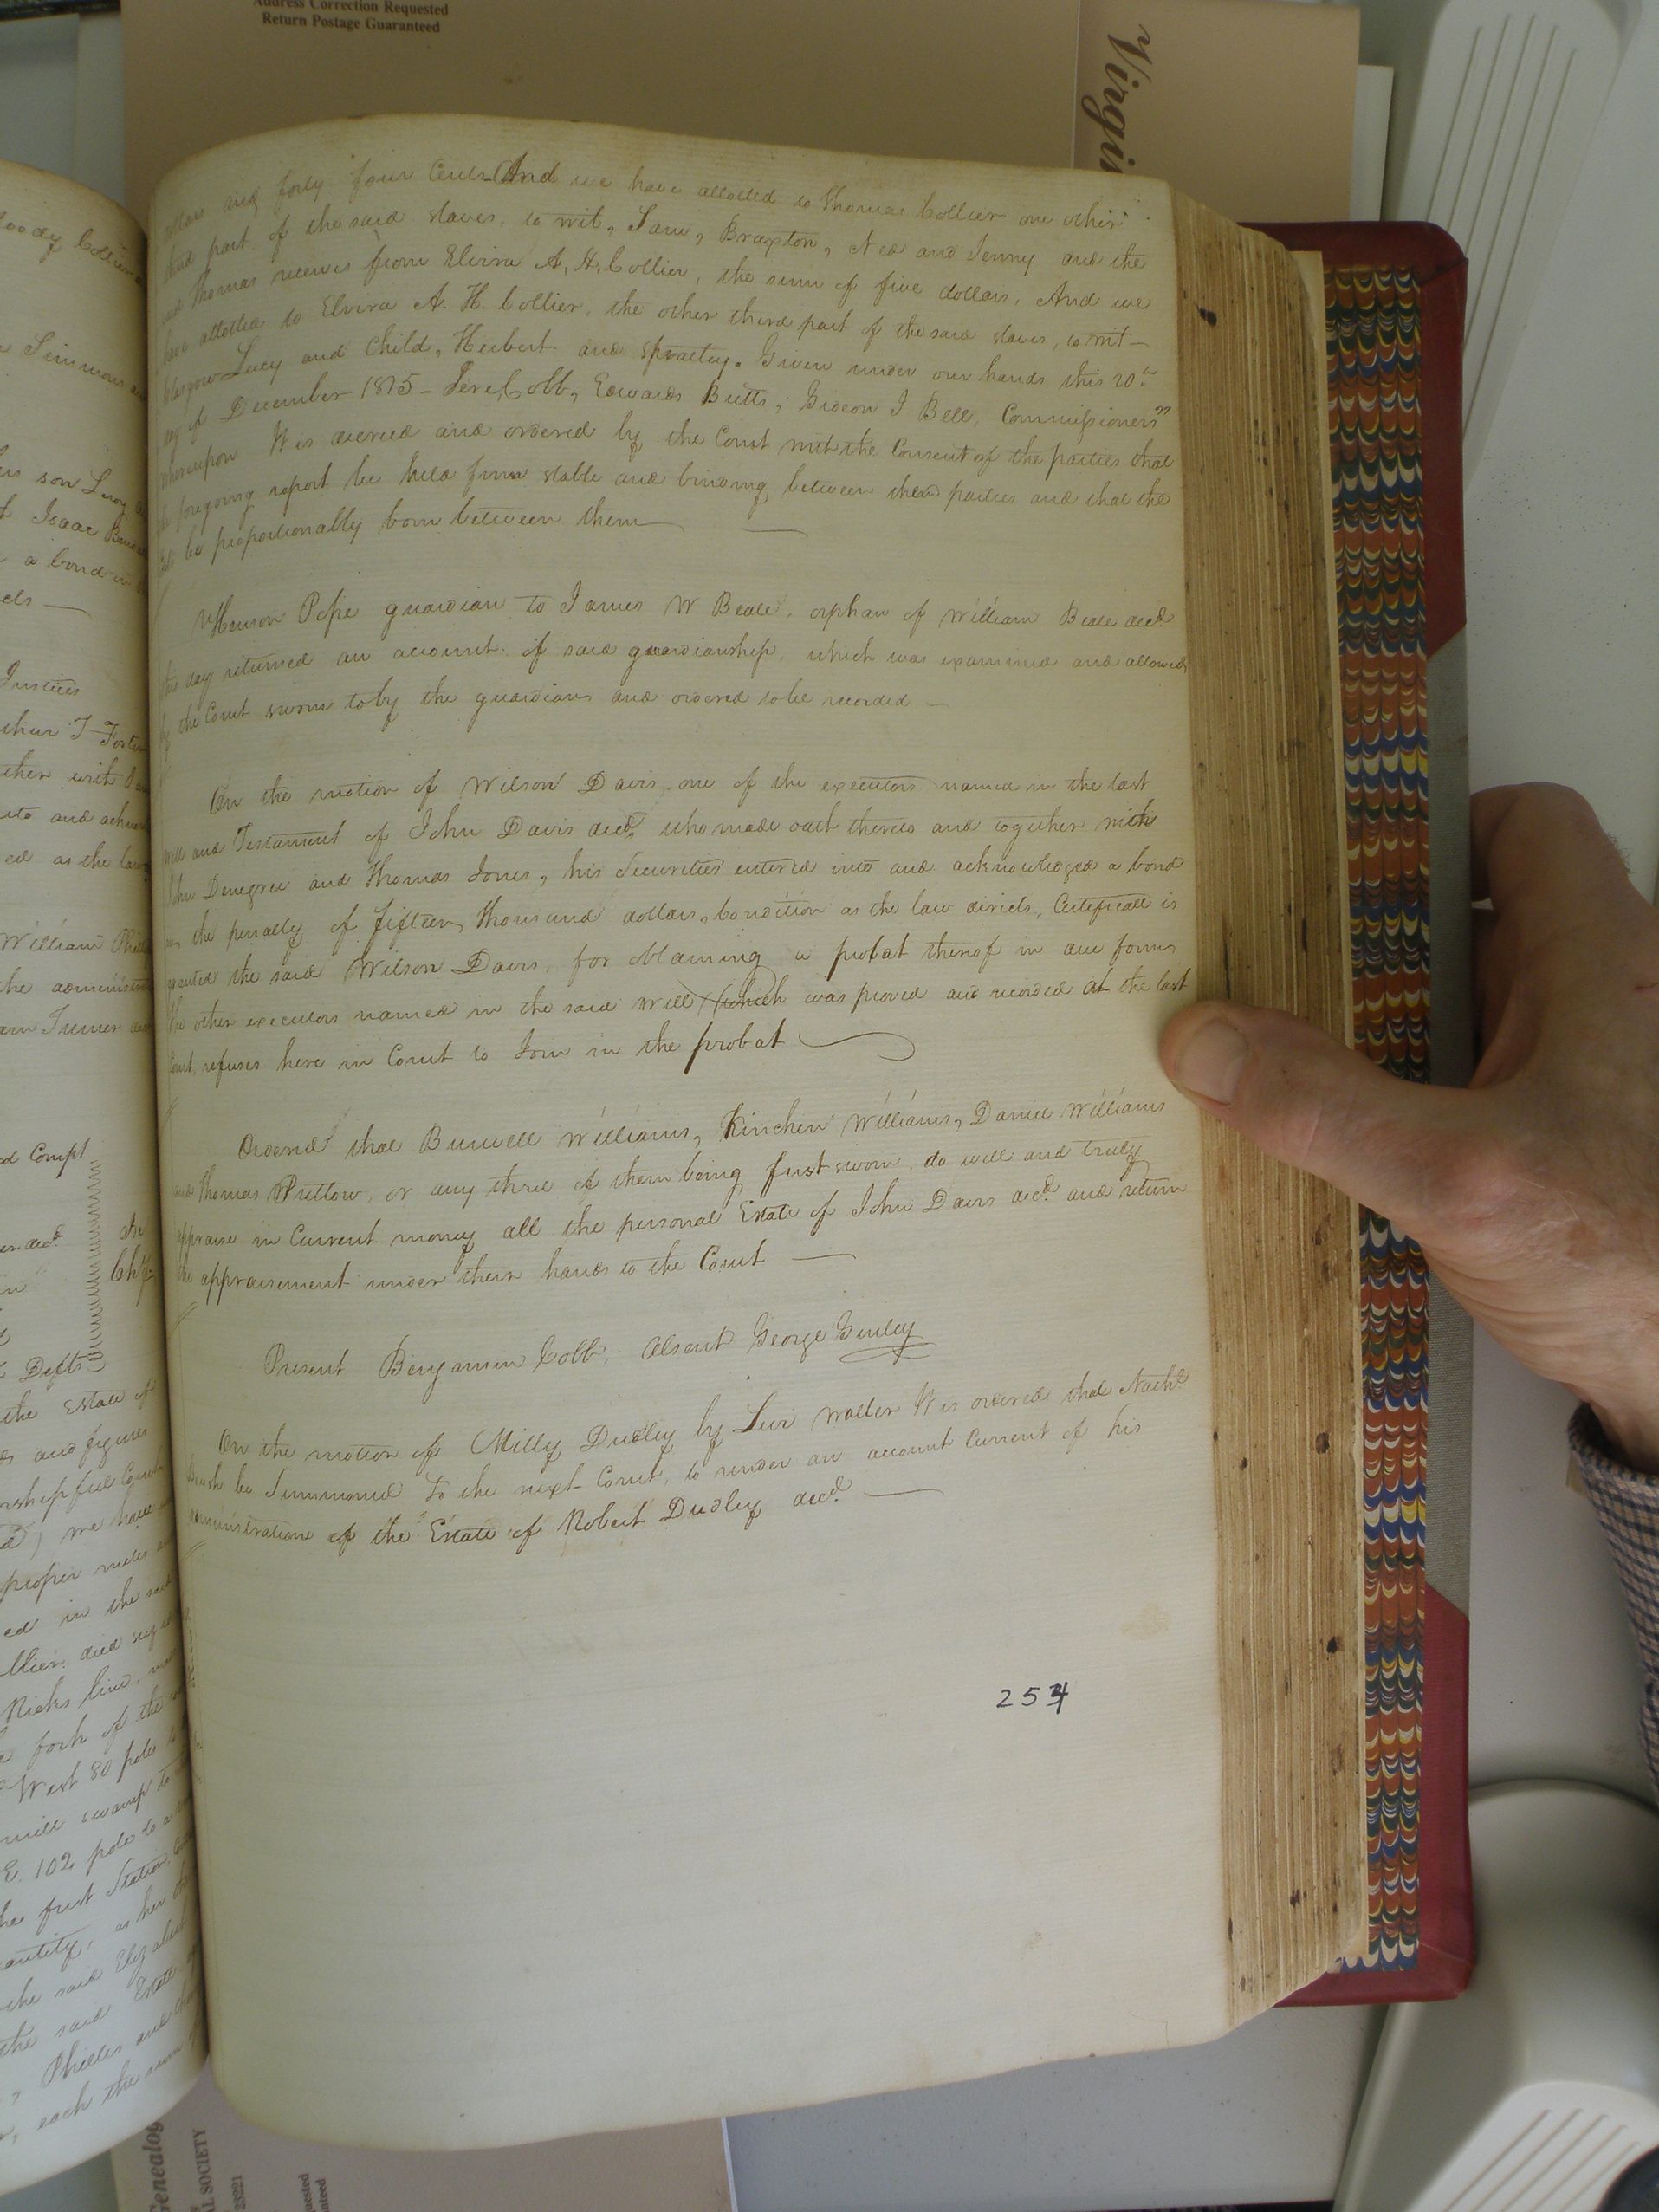 Address Correction Requested
Return Postage Guaranteed
Virgi
and forty four Cents And we have allotted to Thomas Collier one other
third part of the said slaves, to wit, Sam, Braxton, Ned and Jenny and the
said Thomas receives from Elvira A. H. Collier, the sum of five dollars. And we
have allotted to Elvira A. H. Collier, the other third part of the said slaves, to wit
Glasgow Lucy and Child, Herbert and Spratley. Given under our hands this 20th
day of December 1815 - Jere Cobb, Edwards Butts, Gideon J Bell, Commissioners"
whereupon It is decreed and ordered by the Court with the Consent of the parties that
the foregoing report be held firm stable and binding between the parties and that the
be proportionally born between them
Henson Pope guardian to James W Beale, orphan of William Beale decd.
this day returned an account of said guardianship, which was examined and allowed
by the Court sworn to by the guardian and ordered to be recorded
On the motion of Wilson Davis, one of the executors named in the last
will and Testament of John Davis decd, who made oath thereto and together with
John Denegree and Thomas Jones, his Securities entered into and acknowledged a bond
in the penalty of fifteen Thousand dollars, Condition as the law directs, Certificate is
granted the said Wilson Davis, for obtaining a probat thereof in due form
the other executors named in the said will (which was proved and recorded at the last
Court, refuses here in Court to Join in the probat
Ordered that Burwell Williams, Kinchen Williams, Daniel Williams
and Thomas Pretlow, or any three of them being first sworn, do well and truly
appraise in Current money all the personal Estate of John Davis decd. and return
the appraisement under their hands to the Court
Present Benjamin Cobb, Absent George Gurley
On the motion of Milly Dudley by Levi Waller It is ordered that Nathl.
be Summoned To the next Court, to render an account Current of his
administration of the Estate of Robert Dudley decd.
254
oody Collier
Simmons
son
Isaac
a bond in
Justices
T Foster
with
and
ed as the law
William
the administr
Turner
Compt
Defts
the Estate of
and figures
worshipful Court
we have
proper
ed in the said
llier, decd
Ricks line,
fork of the
West 80 pole
mill swamp to
E. 102 pole to a
the first Station,
quantity, as her
the said Elizabeth
the said Estate
Phillis and
each the sum
Genealog
AL SOCIETY
23221
uested
anteed